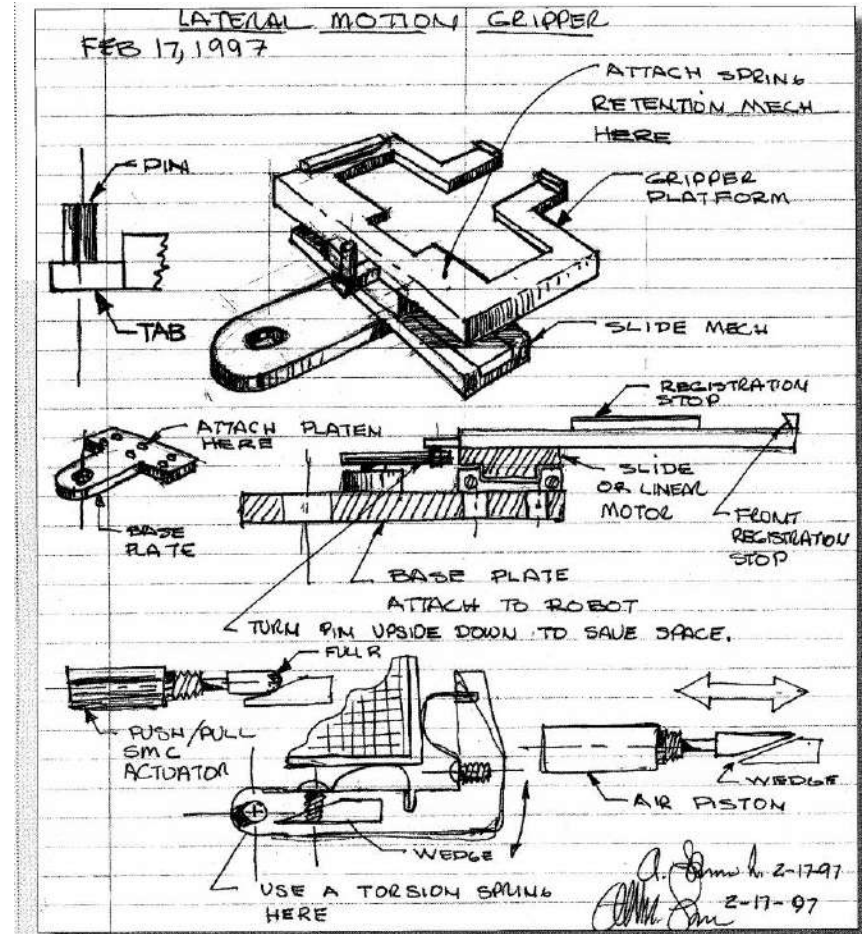 LATERAL MOTION GRIPPER
FEB 17, 1997
ATTACH SPRING
RETENTION MECH
HERE
PIN
GRIPPER
PLATFORM
TAB
SLIDE MECH
REGISTRATION
STOP
ATTACH PLATEN
HERE
SLIDE
OR LINEAR
MOTOR
FRONT
REGISTRATION
STOP
BASE
PLATE
BASE PLATE
ATTACH TO ROBOT
TURN PIN UPSIDE DOWN TO SAVE SPACE.
FULL R
PUSH/PULL
SMC
ACTUATOR
WEDGE
AIR PISTON
WEDGE
USE A TORSION SPRING
HERE
A. 2-17-97
2-17-97